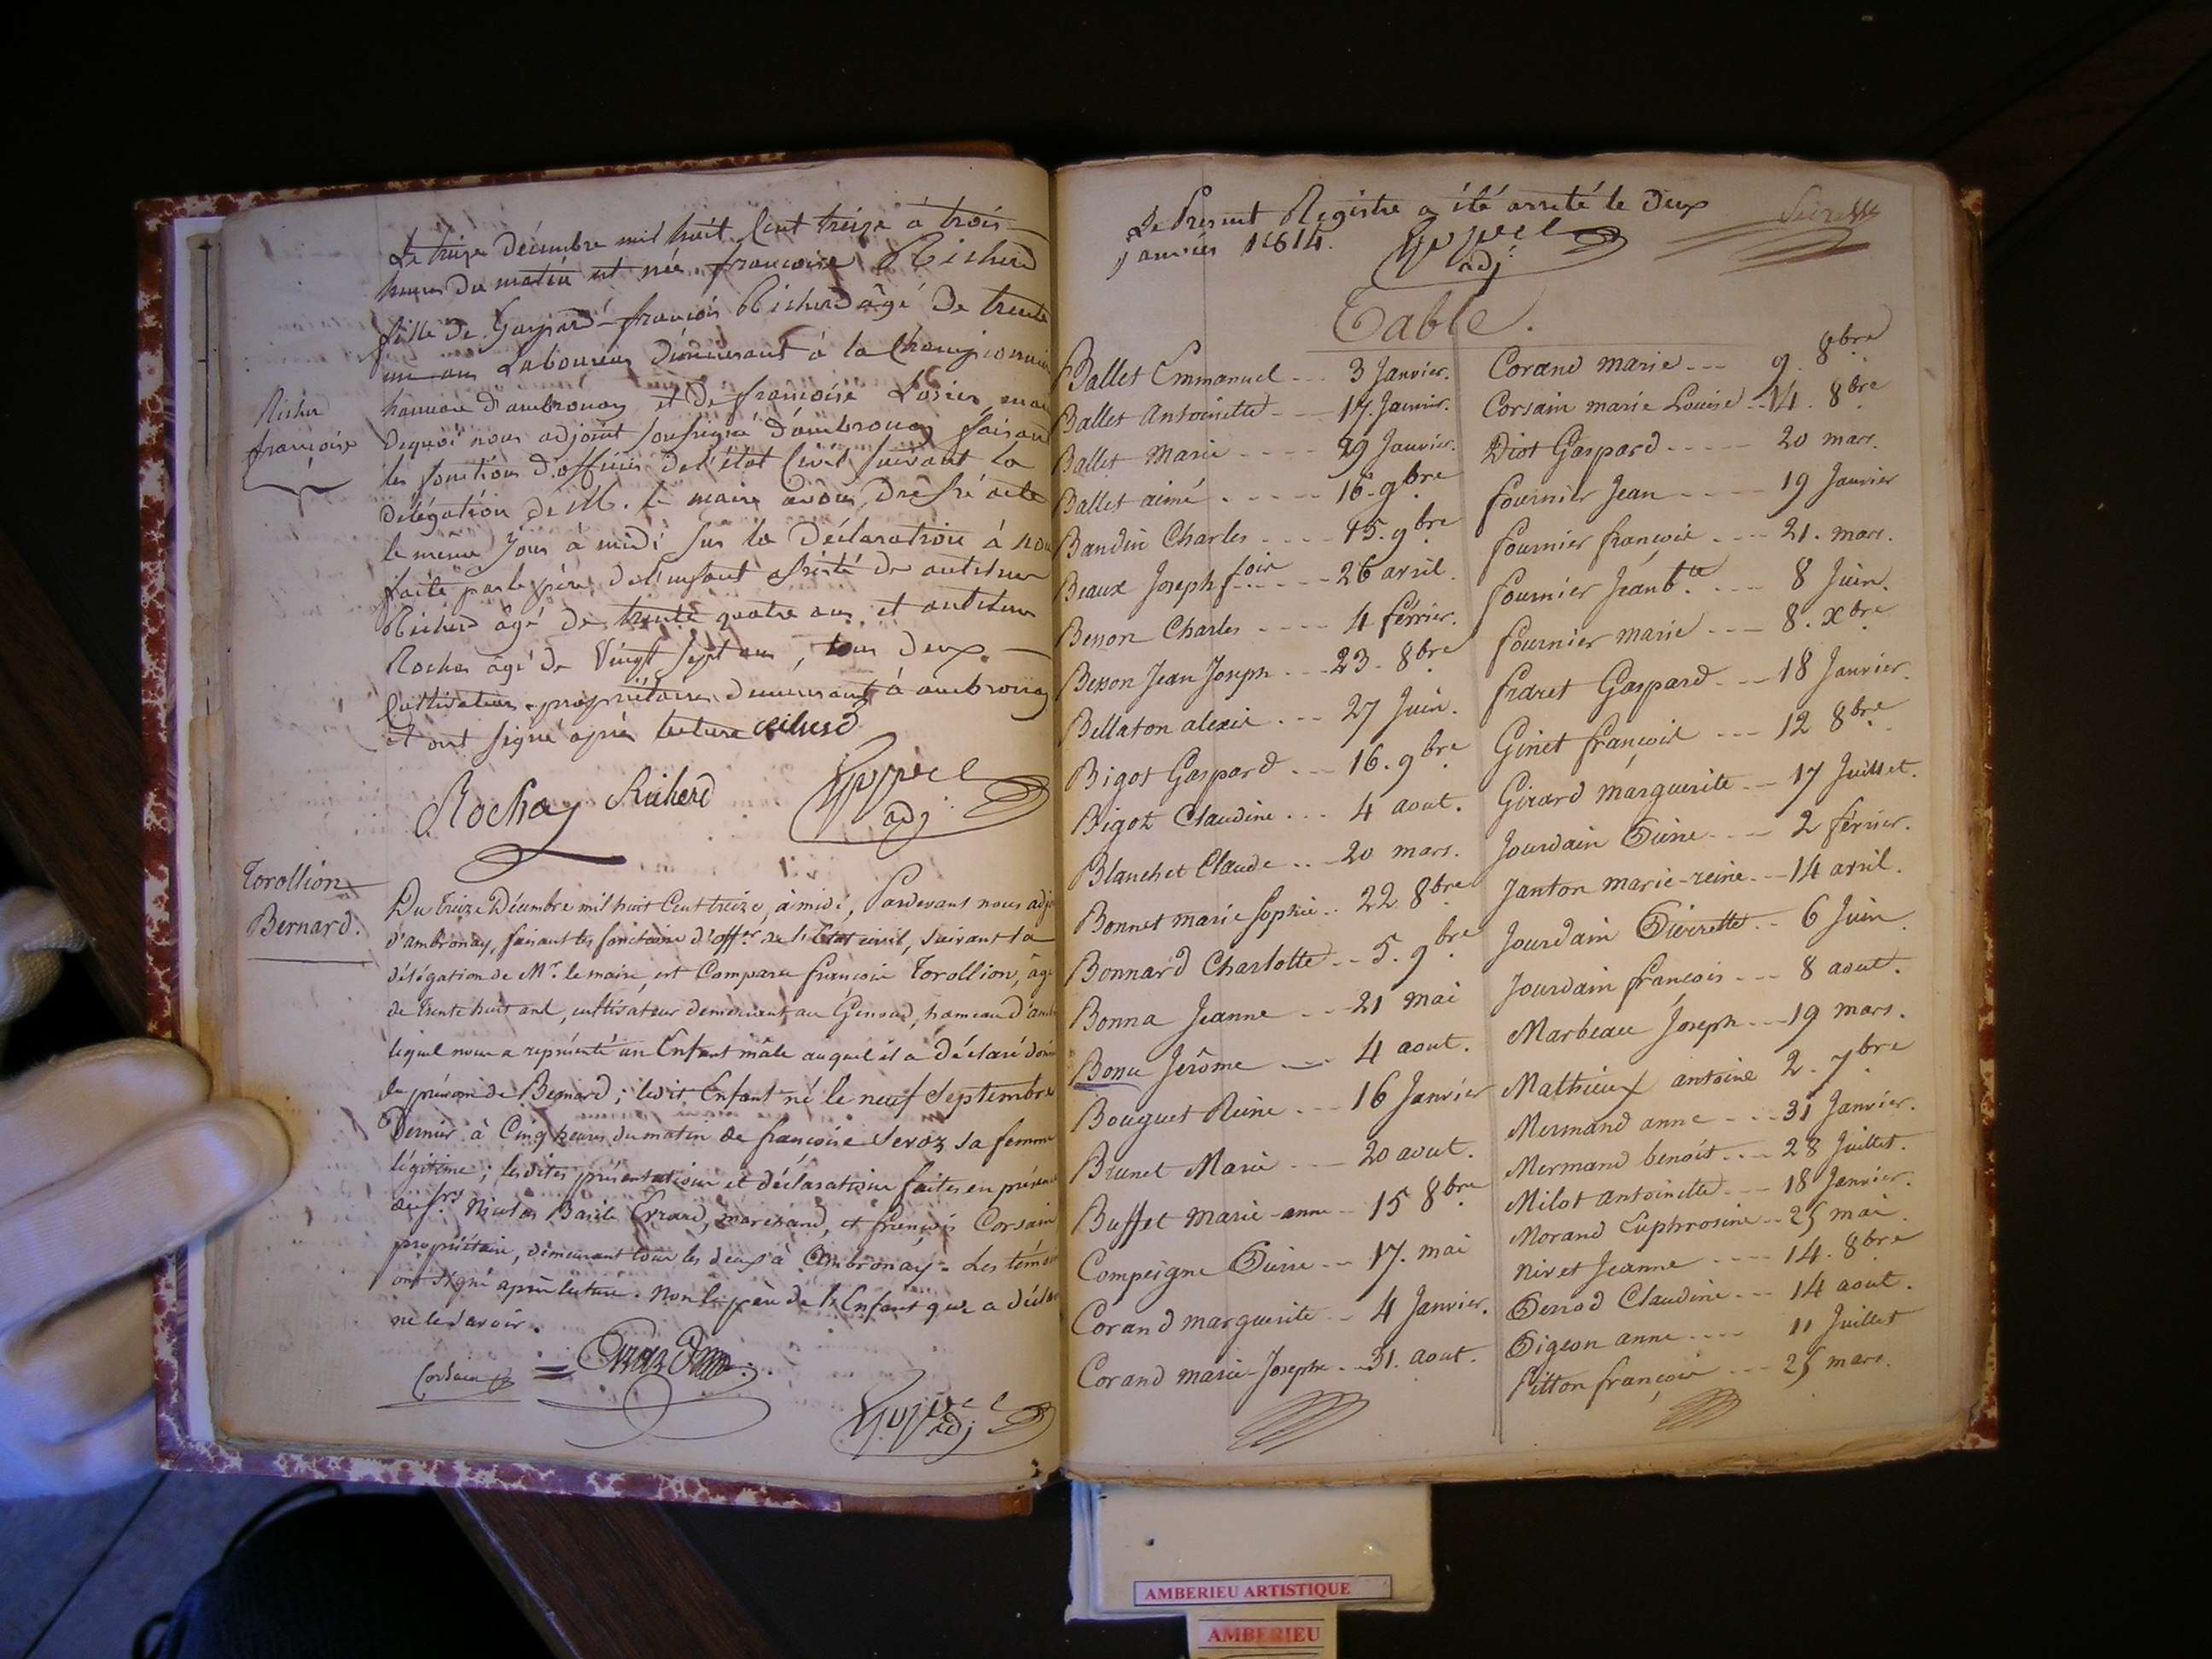 Le treize Décembre mil huit Cent treize à trois
heures du matin est née françoise Richerd
fille de Gaspard-françois Richerd âgé de trente
un ans Laboureur demeurant à la Championnière
hameau d'ambronay et de françoise
dequoi nous adjoint soussigné d'ambronay faisant
les fonctions d'officier de l'état Civil suivant la
délégation de M. le maire avons dressé acte
le même Jour à midi sur la Déclaration à nous
faite par le père de l'enfant assisté de anthelme
Richerd âgé de trente quatre ans et anthelme
Rochas âgé de Vingt sept ans, tous deux
Cultivateurs-propriétaires demeurant à ambronay
et ont signé après lecture
Richer
françoise
Rochay Richerd
adj
Torollion
Bernard.
Du Treize Décembre mil huit Cent treize, à midi, Pardevant nous adjt
d'ambronay, faisant les fonctions d'offer de l'Etat civil, suivant la
délégation de Mr le maire, est Comparu françois Torollion, âgé
de trente huit ans, cultivateur demeurant au Genoud, hameau d'amb
lequel nous a représenté un Enfant mâle auquel il a déclaré donner
le prénom de Bernard; ledit Enfant né le neuf Septembre
Dernier à Cinq heures du matin de françoise Servoz sa femme
légitime; lesdites présentation et déclaration faites en présence
des srs Nicolas Basile Evrard, marchand, et françois Corsain
propriétaire, demeurant tous les deux à Ambronay. Les témoins
ont signé après lecture. Non le père de l'Enfant que a déclaré
ne le savoir.
Corsain
adj
Le Present Registre a été arreté le deux
janvier 1814.
adj
Table.
Ballet Emmanuel --- 3 Janvier.
Ballet Antoinette --- 17. Janvier.
Ballet Marie ---- 29 Janvier.
Ballet aimé ----- 16. 9bre
Baudin Charles ---- 15. 9bre
Beaux Joseph foir ---- 26 avril.
Besson Charles ---- 4 février.
Besson Jean Joseph --- 23. 8bre
Bellaton alexis --- 27 Juin.
Bigot Gaspard --- 16. 9bre
Bigot Claudine ... 4 aout.
Blanchet Claude .. 20 mars.
Bonnet marie Sophie .. 22. 8bre
Bonnard Charlotte -- 5. 9bre
Bonna Jeanne --- 21 mai
Bona Jérôme --- 4 aout.
Bouguet Reine --- 16 Janvier
Brunet Marie --- 20 aout.
Buffet marie-anne -- 15 8bre
Compeigne Pierre -- 17. mai
Corand marguerite -- 4 Janvier.
Corand marie-Josephe -- 31. aout.
Corand marie --- 9. 8bre
Corsain marie Louise -- 14. 8bre
Diot Gaspard ----- 20 mars.
fournier Jean ---- 19 Janvier
fournier françois ---- 21. mars.
fournier Jeanbte ---- 8 Juin.
fournier marie --- 8. Xbre
fraret Gaspard -- 18 Janvier.
Ginet françois --- 12 8bre
Girard marguerite -- 17 Juillet.
Jourdain Pierre --- 2 février.
Janton marie-reine --- 14 avril.
Jourdain Pierrette -- 6 Juin
Jourdain françois --- 8 aout.
Marbeau Joseph --- 19 mars.
Mathieux antoine 2. 7bre
Mermand anne --- 31 Janvier.
Mermand benoît --- 28 Juillet.
Milot Antoinette --- 18 Janvier.
Morand Euphrosine -- 25 mai.
Nivet Jeanne ---- 14. 8bre
Perrod Claudine --- 14 aout.
Pigeon anne ---- 11 Juillet
Pitton françois --- 25 mars.
AMBERIEU ARTISTIQUE
AMBERIEU